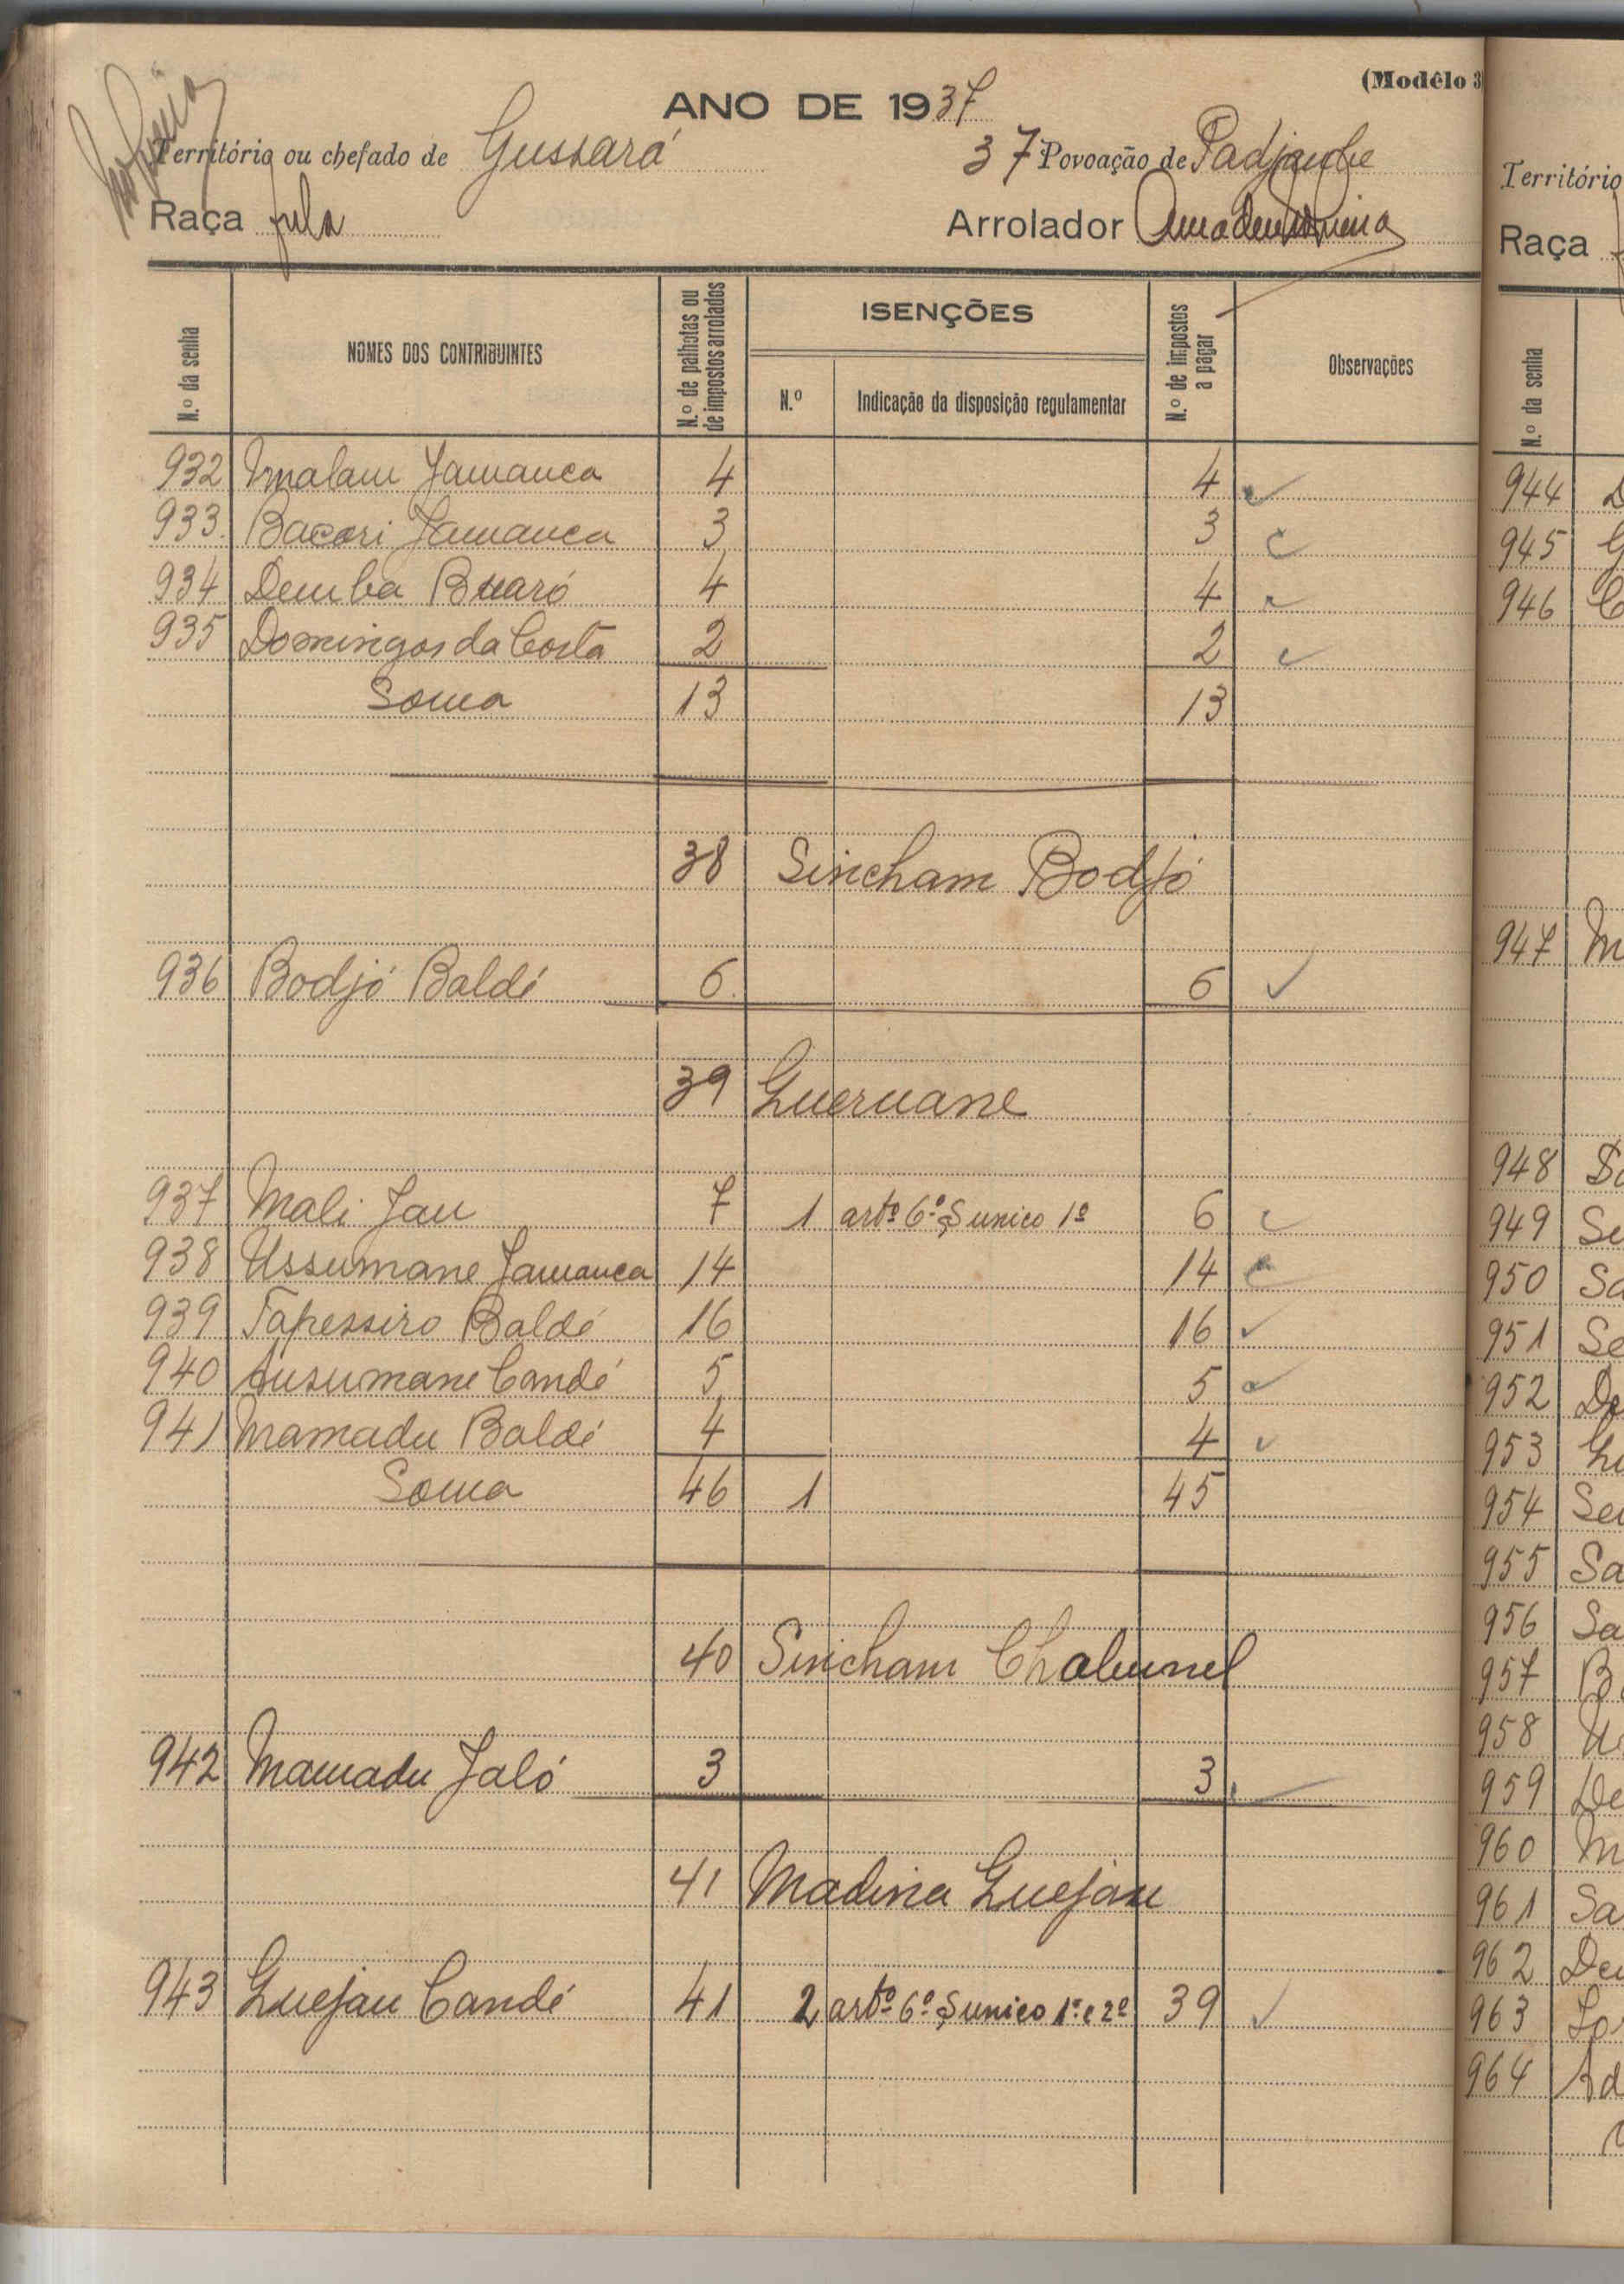 (Modêlo 3
ANO DE 1937
Território ou chefado de Gussará 37 Povoação de Padjambe
Raça fula Arrolador
N.º da senha NOMES DOS CONTRIBUINTES N.º de palhotas ou de impostos arrolados ISENÇÕES N.º Indicação da disposição regulamentar N.º de impostos a pagar Observações
932 Malam Jamanca 4 4
933 Bacari Jamanca 3 3
934 Demba Buaró 4 4
935 Domingos da Costa 2 2
Soma 13 13
38 Sincham Bodjó
936 Bodjó Baldé 6 6
39 Gueruane
937 Mali Jau 7 1 artº 6º § unico 1º 6
938 Ussumane Jamanca 14 14
939 Tapessiro Baldé 16 16
940 Ansumane Candé 5 5
941 Mamadu Baldé 4 4
Soma 46 1 45
40 Sincham
942 Mamadu Jaló 3 3
41 Madina Guejau
943 Guejau Candé 41 2 artº 6º § unico 1º e 2º 39
Território
Raça
N.º da senha
944
945
946
947
948
949 Se
950 Sa
951 Se
952 De
953
954
955 Sa
956 Sa
957 B
958
959 De
960 M
961 Sa
962
963
964 Ad